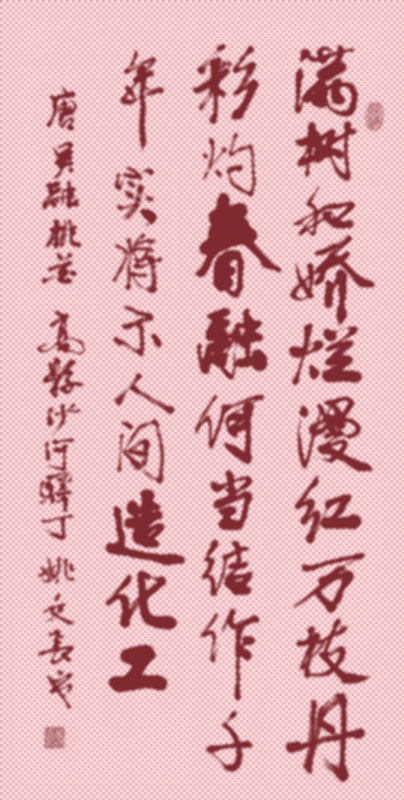 满树和娇烂漫红万枝丹
彩灼春融何当结作千
年实将示人间造化工
唐吴融桃花 高县沙河驿丁 姚文长书